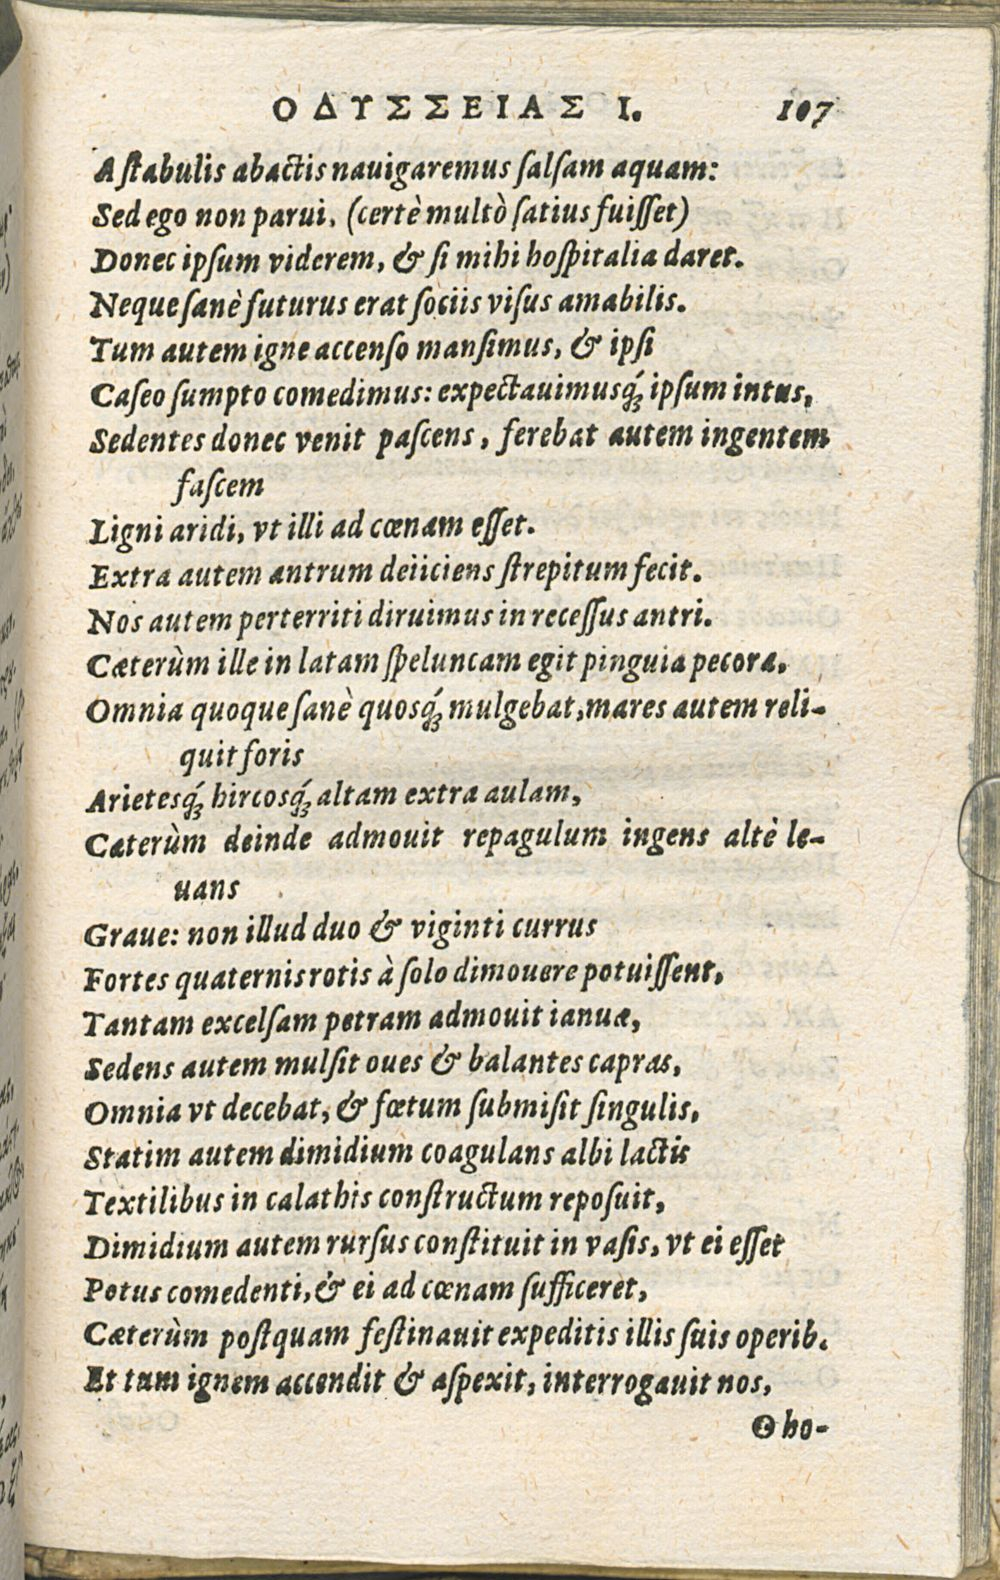 ΟΔΥΣΣΕΙΑΣ Ι. 107
A ſtabulis abactis nauigaremus ſalſam aquam:
Sed ego non parui, (certè multò ſatius fuiſſet)
Donec ipſum viderem, & ſi mihi hoſpitalia daret.
Neque ſanè futurus erat ſociis viſus amabilis.
Tum autem igne accenſo manſimus, & ipſi
Caſeo ſumpto comedimus: expectauimusq́; ipſum intus,
Sedentes donec venit paſcens, ferebat autem ingentem
faſcem
Ligni aridi, vt illi ad cœnam eſſet.
Extra autem antrum deiiciens ſtrepitum fecit.
Nos autem perterriti diruimus in receſſus antri.
Cæterùm ille in latam ſpeluncam egit pinguia pecora,
Omnia quoque ſanè quosq́; mulgebat, mares autem reli-
quit foris
Arietesq́; hircosq́; altam extra aulam,
Cæterùm deinde admouit repagulum ingens altè le-
uans
Graue: non illud duo & viginti currus
Fortes quaternis rotis à ſolo dimouere potuiſſent,
Tantam excelſam petram admouit ianuæ,
Sedens autem mulſit oues & balantes capras,
Omnia vt decebat, & fœtum ſubmiſit ſingulis,
Statim autem dimidium coagulans albi lactis
Textilibus in calathis conſtructum repoſuit,
Dimidium autem rurſus conſtituit in vaſis, vt ei eſſet
Potus comedenti, & ei ad cœnam ſufficeret,
Cæterùm poſtquam feſtinauit expeditis illis ſuis operib.
Et tum ignem accendit & aſpexit, interrogauit nos,
O ho-